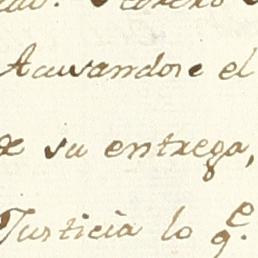 Acusandose el
de su entrega,
Justicia lo q.e